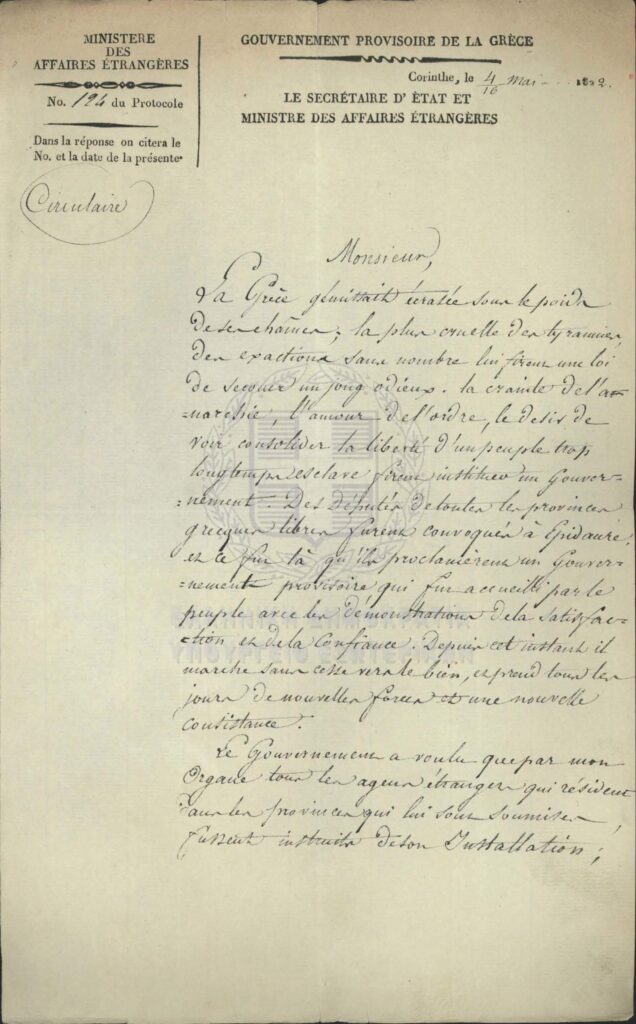 MINISTERE
DES
AFFAIRES ÉTRANGÈRES
No. 124 du Protocole
Dans la réponse on citera le
No. et la date de la présente.
Circulaire
GOUVERNEMENT PROVISOIRE DE LA GRÈCE
Corinthe, le 4/16 mai 1822.
LE SECRÉTAIRE D' ÈTAT ET
MINISTRE DES AFFAIRES ÉTRANGÈRES
Monsieur,
La Grèce gémissait écrasée sous le poids
de ses chaînes; la plus cruelle des tyrannies,
des exactions sans nombre lui firent une loi
de secouer un joug odieux. la crainte de l'a-
-narchie, l'amour de l'ordre, le desir de
voir consolider la liberté d'un peuple trop
longtemps esclave firent instituer un Gouver-
-nement. Des Députés de toutes les provinces
grecques libres furent convoqués à Epidaure,
et ce fut là qu'ils proclamèrent un Gouver-
-nement provisoire qui fut accueilli par le
peuple avec les démonstrations de la satisfac-
-tion et de la Confiance. Depuis cet instant il
marche sans cesse vers le bien, et prend tous les
jours de nouvelles forces et une nouvelle
consistance.
Le Gouvernement a voulu que par mon
Organe tous les agens étrangers qui résident
dans les provinces qui lui sont soumises
fussent instruits de son Installation;